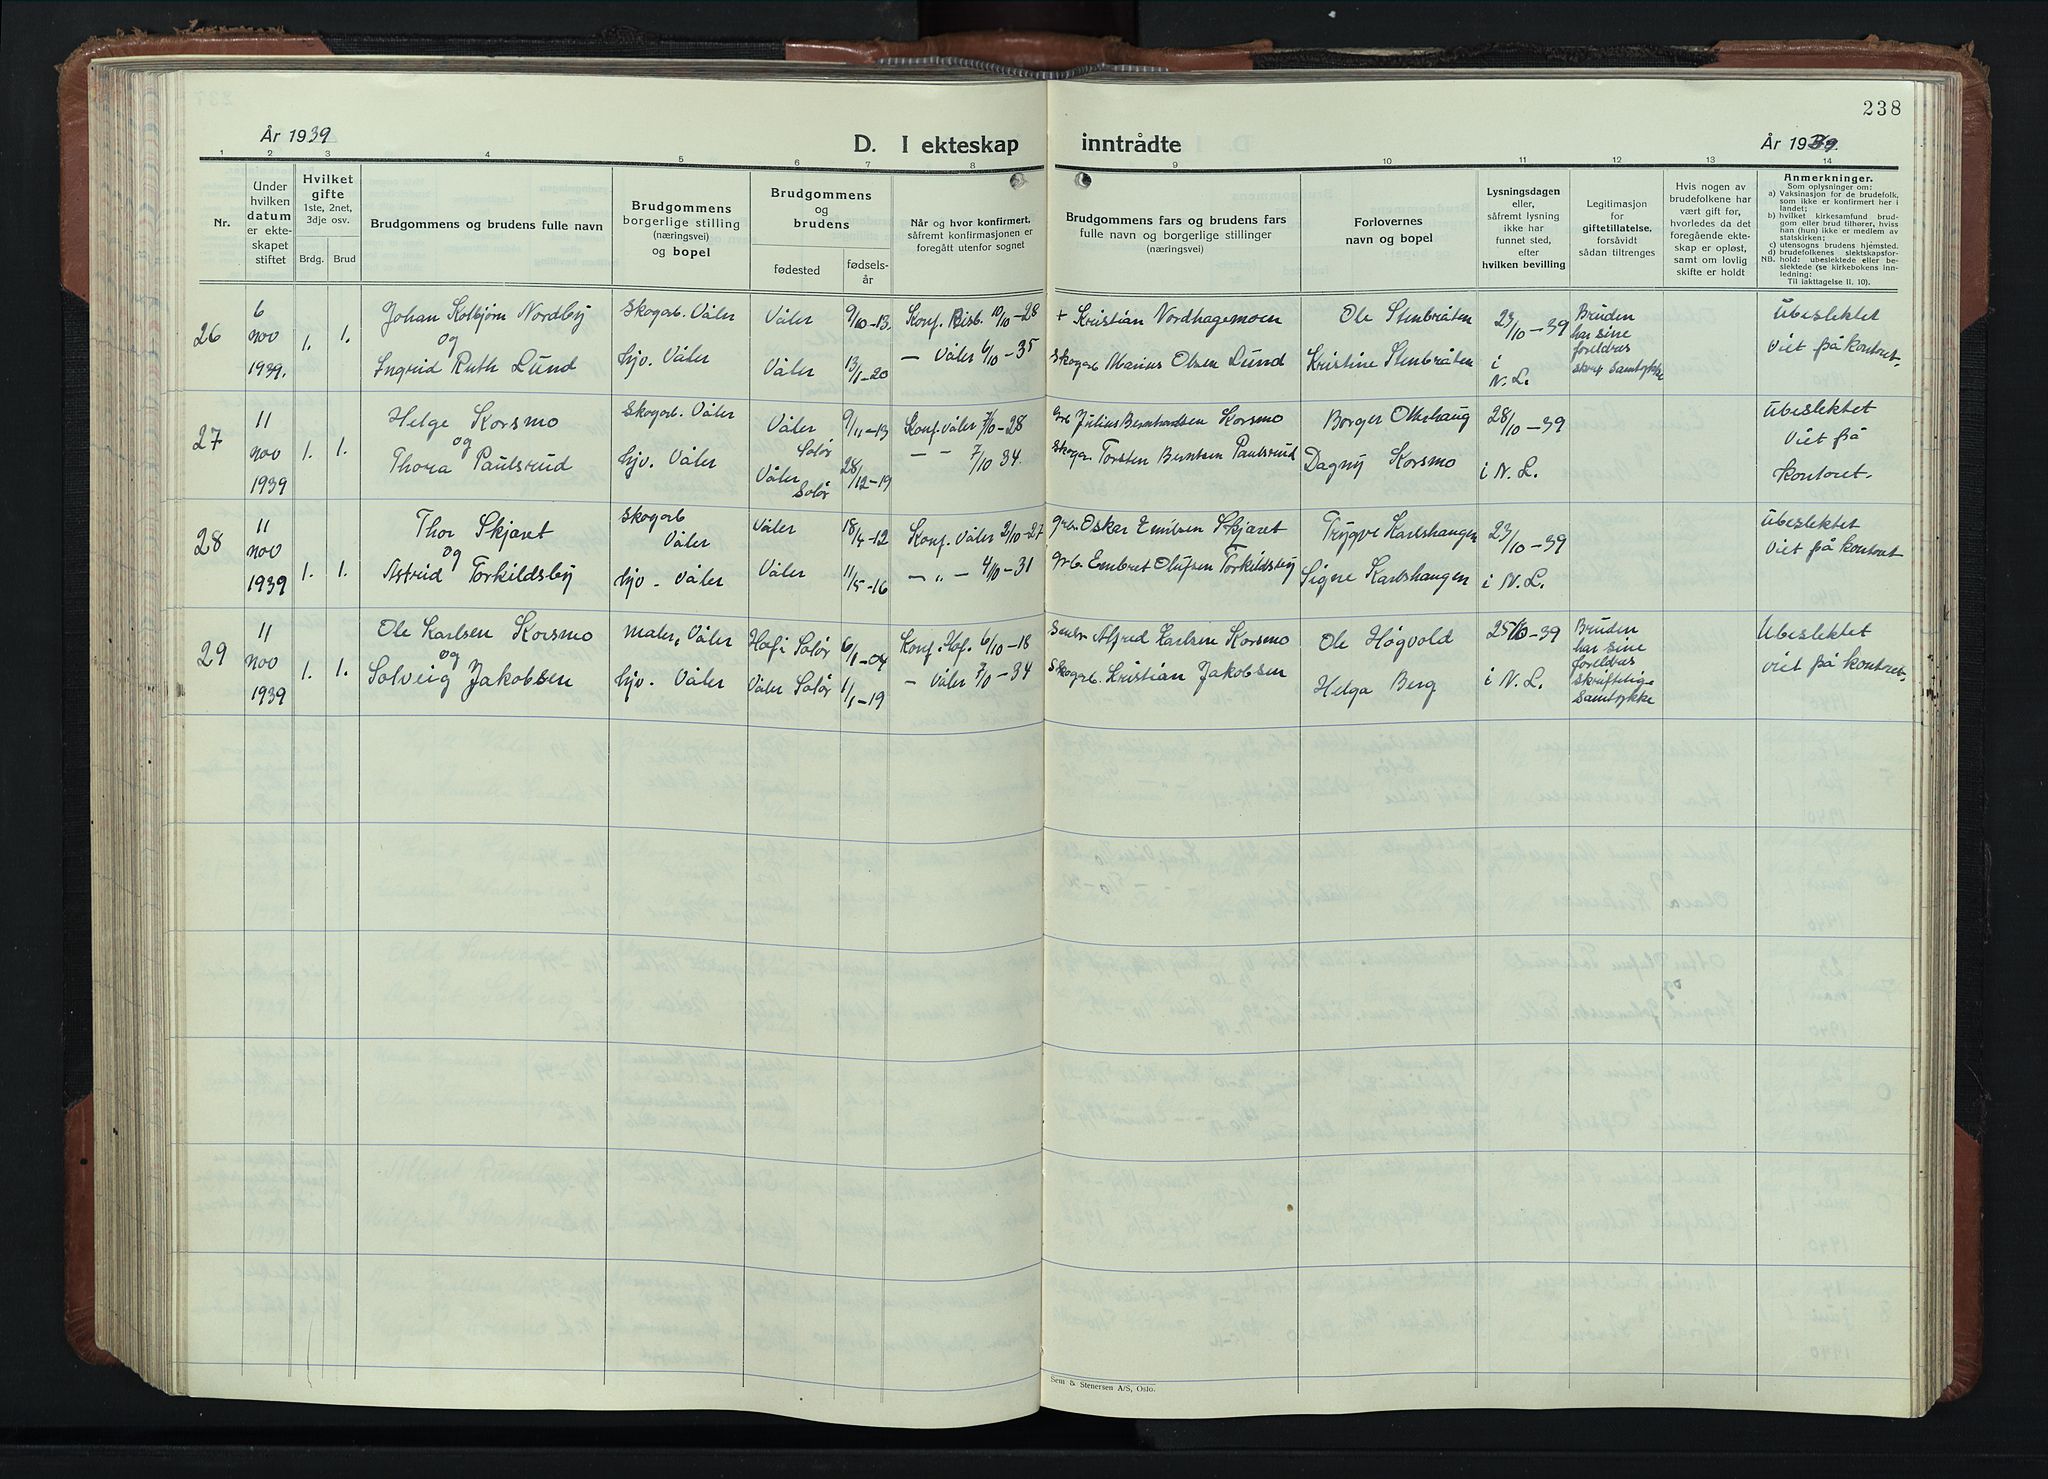 238
År 1939
D. I ekteskap inntrådte
År 1939.
1 2 3 4 5 6 7 8 9 10 11 12 13 14
Nr.
Under
hvilken
datum
er ekte-
skapet
stiftet
Hvilket
gifte
1ste, 2net,
3dje osv.
Brdg. Brud
Brudgommens og brudens fulle navn
Brudgommens
borgerlige stilling
(næringsvei)
og bopel
Brudgommens
og
brudens
fødested
fødsels-
år
Når og hvor konfirmert,
såfremt konfirmasjonen er
foregått utenfor sognet
Brudgommens fars og brudens fars
fulle navn og borgerlige stillinger
(næringsvei)
Forlovernes
navn og bopel
Lysningsdagen
eller,
såfremt lysning
ikke har
funnet sted,
efter
hvilken bevilling
Legitimasjon
for
giftetillatelse,
forsåvidt
sådan tiltrenges
Hvis nogen av
brudefolkene har
vært gift før,
hvorledes da det
foregående ekte-
skap er opløst,
samt om lovlig
skifte er holdt
Anmerkninger.
Som oplysninger om:
a) Vaksinasjon for de brudefolk,
som ikke er konfirmert her i
landet;
b) hvilket kirkesamfund brud-
gom eller brud tilhører, hviss
han (hun) ikke er medlem av
statskirken;
c) utensogns brudens hjemsted.
d) brudefolkenes slektskapsfor-
NB. hold: ubeslektede eller be-
slektede (se kirkebokens inn-
ledning:
Til iakttagelse II. 10).
26
6
nov
1939.
1. 1.
Johan Kolbjørn Nordby
og
Ingrid Ruth Lund
Skogarb. Våler
hjv. Våler
Våler 9/10-13.
Våler 13/1-20
Konf. Bisb. 10/10-28
— Våler 6/10-35
+ Kristian Nordhagemoen
Skogarb Marius Olsen Lund
Ole Stenbråten
Kristine Stenbråten
23/10-39
i
N. L.
Bruden
har sine
foreldres
skr. samtykke
Ubeslektet
Viet på kontoret.
27
11
nov
1939
1. 1.
Helge Korsmo
og
Thora Paulsrud
Skogarb. Våler
hjv. Våler
Våler
Solør 9/11-13
Våler
Solør 28/12-19
Konf. Våler 7/10-28
— — 7/10 34.
Grb Julius Bernhardsen Korsmo
Skogar. Torsten Berntsen Paulsrud
Borger Otteshaug
Dagny Korsmo
28/10-39
i N. L.
Ubeslektet
Viet på
kontoret.
28
11
nov
1939
1. 1.
Thor Skjæret
og
Astrid Torkildsby
Skogarb
Våler
hjv. Våler
Våler 18/4-12
Våler 11/5-16
Konf. Våler 2/10-27
— „ — 4/10-31
grb. Oskar Emilsen Skjæret
grb. Embret Olufsen Torkildsby
Trygve Karlshaugen
Signe Karlshaugen
23/10-39
i N. L.
Ubeslektet
Viet på kontoret
29
11
nov
1939
1. 1.
Ole Karlsen Korsmo
og
Solveig Jakobsen
Maler, Våler
hjv. Våler
Hof i Solør 6/1-04
Våler Solør 1/1-19
Konf. Hof. 6/10-18
— Våler 7/10-34
Alfred Karlsen Korsmo
Skogarb. Kristian Jakobsen
Ole Høgvold
Helga Berg
25/10-39
i N. L.
Bruden
har sine
foreldres
skriftelige
samtykke
Ubeslektet
viet på kontoret.
Sem & Stenersen A/S, Oslo.